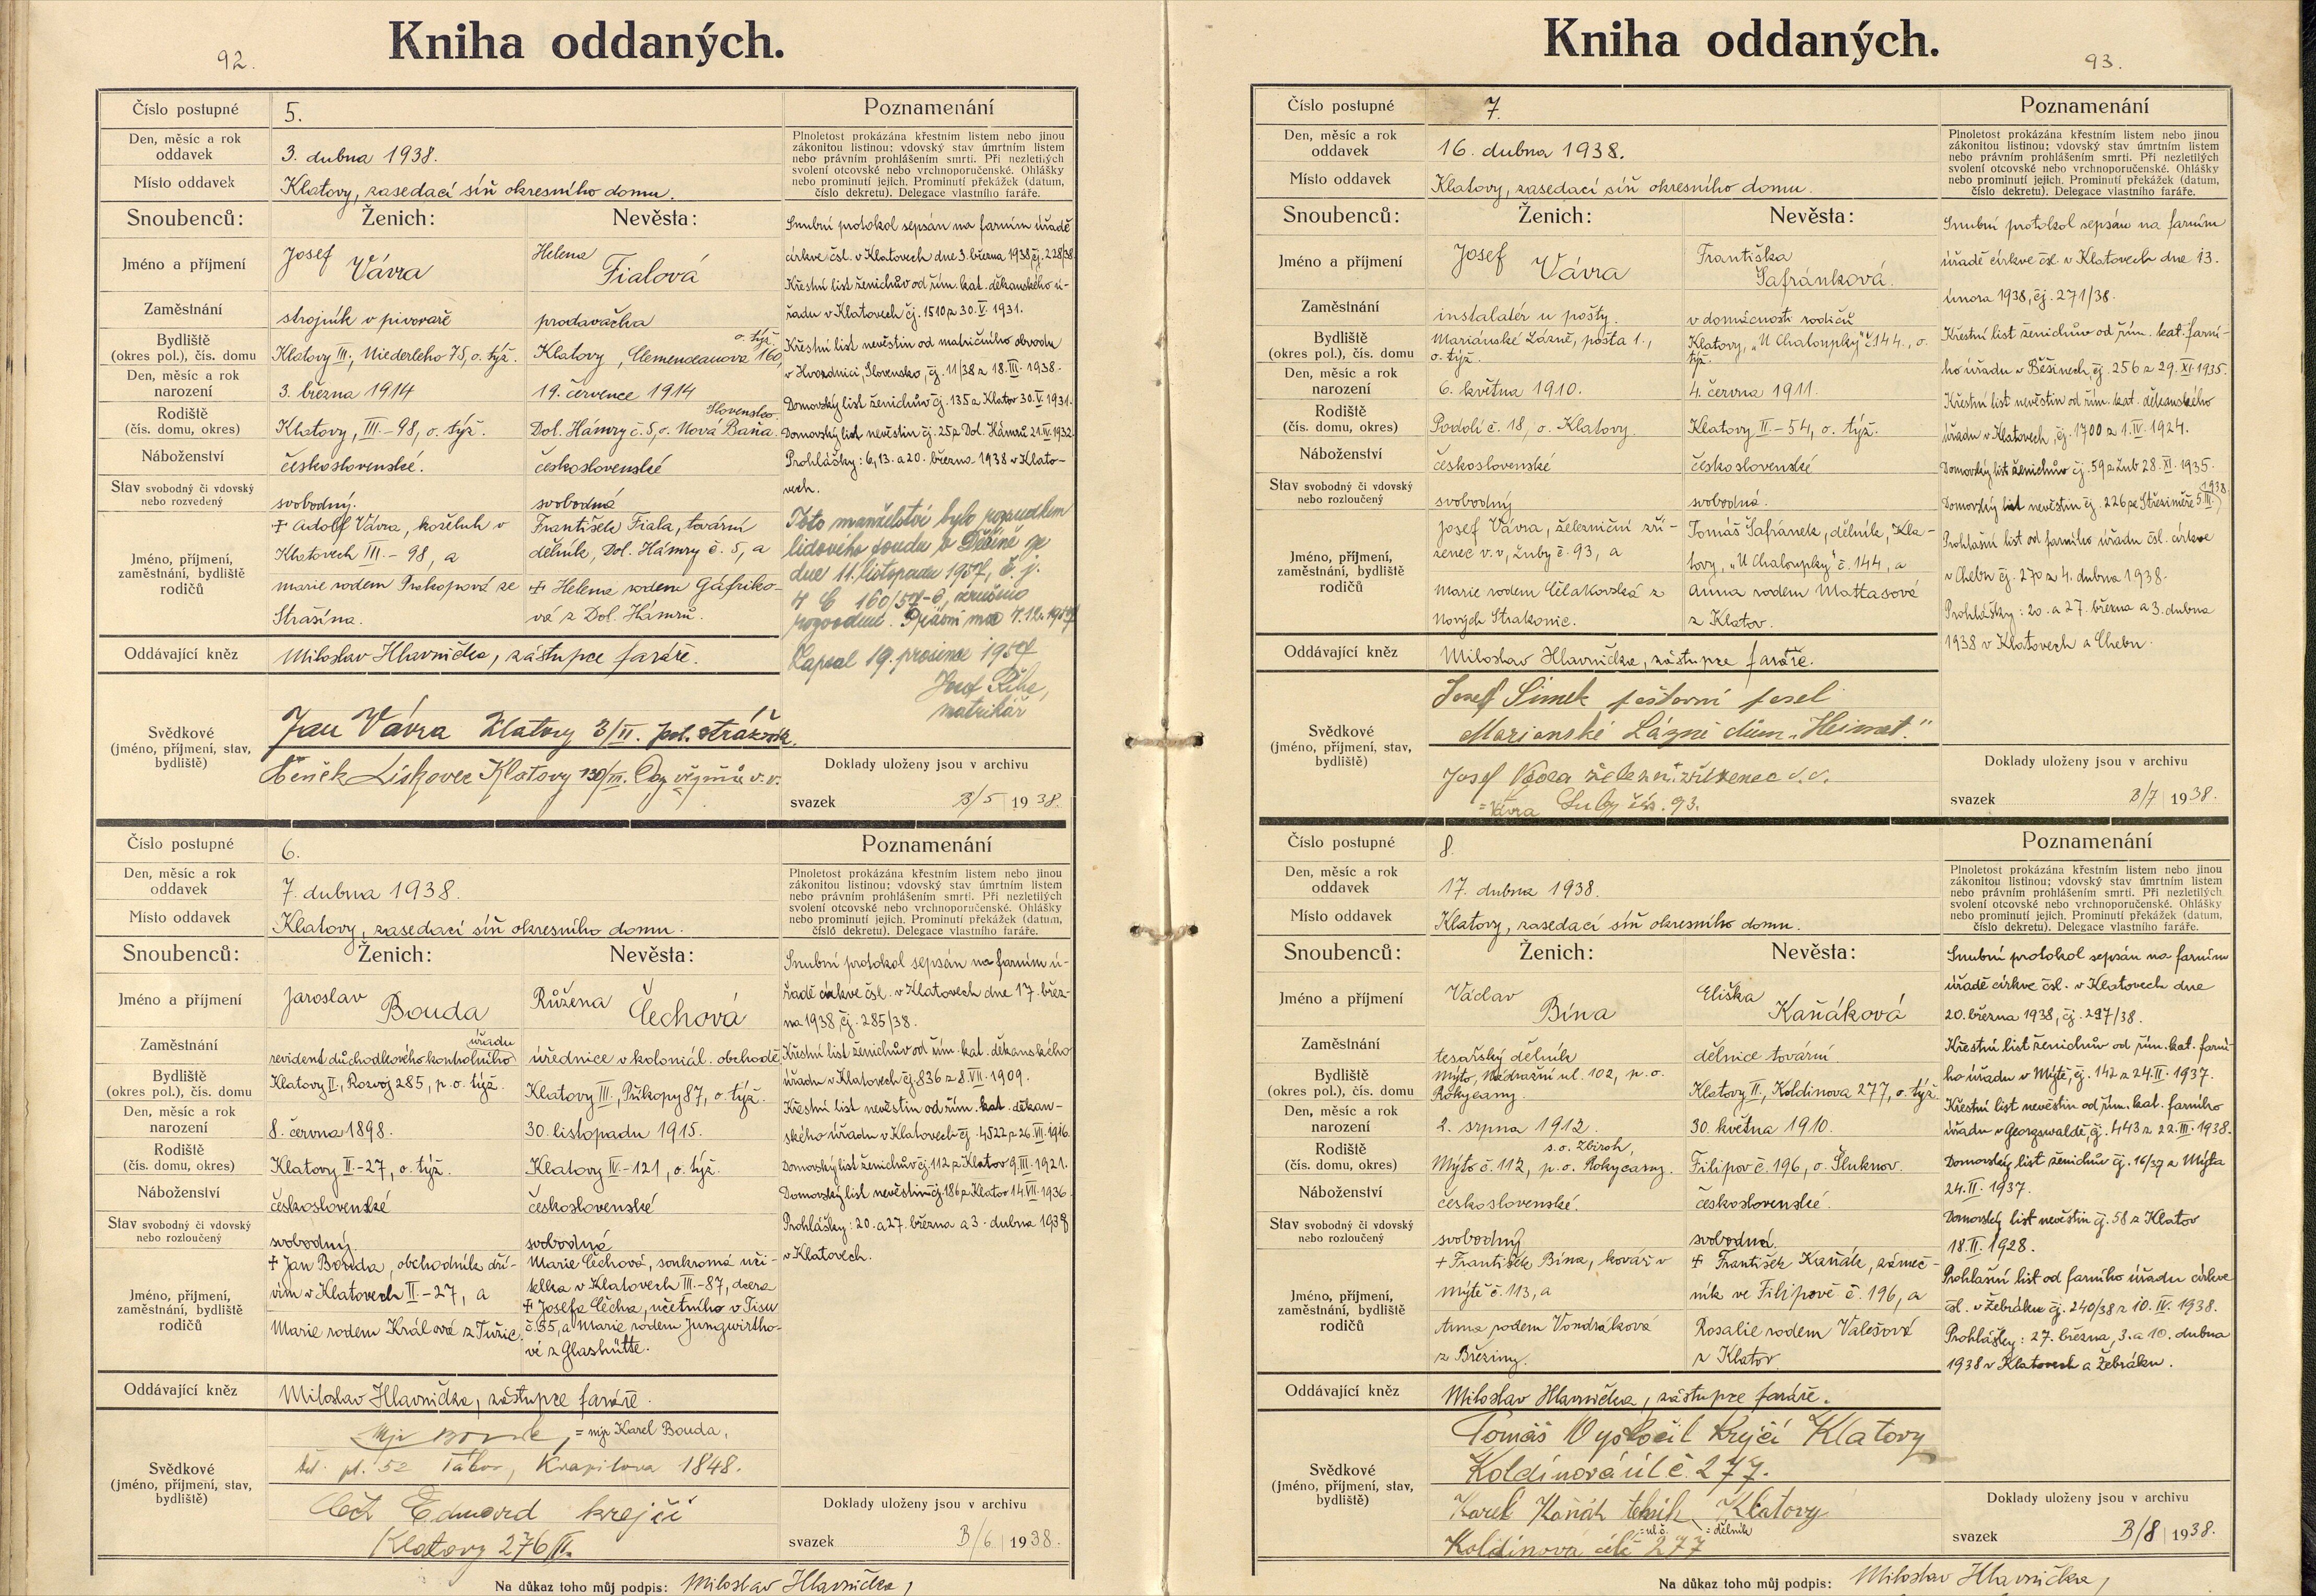 92.
Kniha oddaných.
Číslo postupné
5.
Poznamenání
Den, měsíc a rok
oddavek
3. dubna 1938.
Plnoletost prokázána křestním listem nebo jinou
zákonitou listinou; vdovský stav úmrtním listem
nebo právním prohlášením smrti. Při nezletilých
svolení otcovské nebo vrchnoporučenské. Ohlášky
nebo prominutí jejich. Prominutí překážek (datum,
číslo dekretu). Delegace vlastního faráře.
Místo oddavek
Klatovy, zasedací síň okresního domu.
Snoubenců:
Ženich:
Nevěsta:
Jméno a příjmení
Josef
Vávra
Helena
Fialová
Zaměstnání
strojník v pivovaře
prodavačka
Bydliště
(okres pol.), čís. domu
Klatovy III., Niederleho 75, o. týž.
o. týž.
Klatovy, Clemenceauova 160,
Den, měsíc a rok
narození
3. března 1914
19. července 1914
Rodiště
(čís. domu, okres)
Klatovy, III.-98, o. týž.
Slovensko.
Dol. Hámry č. 5, o. Nová Baňa.
Náboženství
československé.
československé
Stav svobodný či vdovský
nebo rozvedený
svobodný.
svobodná
Jméno, příjmení,
zaměstnání, bydliště
rodičů
+ Adolf Vávra, koželuh v
Klatovech III.-98, a
Marie rodem Prokopová ze
Strašína.
František Fiala, tovární
dělník, Dol. Hámry č. 5, a
+ Helena rodem Gáfriko-
vá z Dol. Hámrů.
Snubní protokol sepsán na farním úřadě
církve čsl. v Klatovech dne 3. března 1938, čj. 228/38.
Křestní list ženichův od řím. kat. děkanského ú-
řadu v Klatovech čj. 1510 z 30. V. 1931.
Křestní list nevěstin od matričního obvodu
v Hvozdnici, Slovensko, čj. 11/38 z 18. III. 1938.
Domovský list ženichův čj. 135 z Klatov 30. V. 1931.
Domovský list nevěstin čj. 25 z Dol. Hámrů 21. IV. 1932.
Prohlášky: 6., 13. a 20. března 1938 v Klato-
vech.
Toto manželství bylo rozsudkem
lidového soudu v Děčíně ze
dne 11. listopadu 1957, č. j.
4 C 160/57-6, zrušeno
rozvodem. Právní moc 4.12.1957
Zapsal 19. prosince 1957
Josef Říha,
matrikář
Oddávající kněz
Miloslav Hlavnička, zástupce faráře.
Svědkové
(jméno, příjmení, stav,
bydliště)
Jan Vávra Klatovy 3/II. pol. strážník.
Čeněk Liškovec Klatovy 130/III. v. v.
Doklady uloženy jsou v archivu
svazek B/5 1938.
Číslo postupné
6.
Poznamenání
Den, měsíc a rok
oddavek
7. dubna 1938.
Plnoletost prokázána křestním listem nebo jinou
zákonitou listinou; vdovský stav úmrtním listem
nebo právním prohlášením smrti. Při nezletilých
svolení otcovské nebo vrchnoporučenské. Ohlášky
nebo prominutí jejich. Prominutí překážek (datum,
číslo dekretu). Delegace vlastního faráře.
Místo oddavek
Klatovy, zasedací síň okresního domu.
Snoubenců:
Ženich:
Nevěsta:
Jméno a příjmení
Jaroslav
Bouda
Růžena
Čechová
Zaměstnání
úřadu
revident důchodkového kontrolního
úřednice v koloniál. obchodě
Bydliště
(okres pol.), čís. domu
Klatovy II., Rozvoj 285, p. o. týž.
Klatovy III., Příkopy 87, o. týž.
Den, měsíc a rok
narození
8. června 1898.
30. listopadu 1915.
Rodiště
(čís. domu, okres)
Klatovy II.-27, o. týž.
Klatovy IV.-121, o. týž.
Náboženství
československé
československé
Stav svobodný či vdovský
nebo rozloučený
svobodný
svobodná
Jméno, příjmení,
zaměstnání, bydliště
rodičů
+ Jan Bouda, obchodník dří-
vím v Klatovech II.-27, a
Marie rodem Králová z Tužic.
Marie Čechová, soukromá uči-
telka v Klatovech III.-87, dcera
+ Josefa Čecha, účetního v Tisu
č. 55, a Marie rodem Jungwirtho-
vé z Glashütte.
Snubní protokol sepsán na farním ú-
řadě církve čsl. v Klatovech dne 17. břez-
na 1938, čj. 285/38.
Křestní list ženichův od řím. kat. děkanského
úřadu v Klatovech čj. 836 z 8. VII. 1909.
Křestní list nevěstin od řím. kat. děkan-
ského úřadu v Klatovech čj. 4522 z 26. VII. 1916.
Domovský list ženichův čj. 112 z Klatov 9. III. 1921.
Domovský list nevěstin čj. 186 z Klatov 14. VII. 1936.
Prohlášky: 20. a 27. března a 3. dubna 1938
v Klatovech.
Oddávající kněz
Miloslav Hlavnička, zástupce faráře.
Svědkové
(jméno, příjmení, stav,
bydliště)
= mjr Karel Bouda,
pl. 52 Tábor, Krapilova 1848.
Eduard krejčí
Klatovy 276/II.
Doklady uloženy jsou v archivu
svazek B/6 1938.
Na důkaz toho můj podpis: Miloslav Hlavnička,
Kniha oddaných.
93.
Číslo postupné
7.
Poznamenání
Den, měsíc a rok
oddavek
16. dubna 1938.
Plnoletost prokázána křestním listem nebo jinou
zákonitou listinou; vdovský stav úmrtním listem
nebo právním prohlášením smrti. Při nezletilých
svolení otcovské nebo vrchnoporučenské. Ohlášky
nebo prominutí jejich. Prominutí překážek (datum,
číslo dekretu). Delegace vlastního faráře.
Místo oddavek
Klatovy, zasedací síň okresního domu.
Snoubenců:
Ženich:
Nevěsta:
Jméno a příjmení
Josef
Vávra
Františka
Šafránková.
Zaměstnání
instalatér u pošty.
v domácnosti rodičů
Bydliště
(okres pol.), čís. domu
Mariánské Lázně, pošta 1.,
o. týž.
Klatovy, „U Chaloupky" č. 144., o.
týž.
Den, měsíc a rok
narození
6. května 1910.
4. června 1911.
Rodiště
(čís. domu, okres)
Podolí č. 18, o. Klatovy.
Klatovy II.-54, o. týž.
Náboženství
československé
československé
Stav svobodný či vdovský
nebo rozloučený
svobodný
svobodná.
Jméno, příjmení,
zaměstnání, bydliště
rodičů
Josef Vávra, železniční zří-
zenec v. v., Luby č. 93, a
Marie rodem Čelakovská z
Nových Strakonic.
Tomáš Šafránek, dělník, Kla-
tovy, „U Chaloupky" č. 144, a
Anna rodem Mattasová
z Klatov.
Snubní protokol sepsán na farním
úřadě církve čsl. v Klatovech dne 13.
února 1938, čj. 271/38.
Křestní list ženichův od řím. kat. farní-
ho úřadu v Běšinech, čj. 256 z 29. XI. 1935.
Křestní list nevěstin od řím. kat. děkanského
úřadu v Klatovech, čj. 1700 z 1. IV. 1924.
Domovský list ženichův čj. 59 z Lub 28. XI. 1935.
1938.
Domovský list nevěstin čj. 226 ze Střeziměře 5. III.
Prohlašní list od farního úřadu čsl. církve
v Chebu čj. 270 z 4. dubna 1938.
Prohlášky: 20. a 27. března a 3. dubna
1938 v Klatovech a Chebu.
Oddávající kněz
Miloslav Hlavnička, zástupce faráře.
Svědkové
(jméno, příjmení, stav,
bydliště)
Josef Šimek poštovní posel
Marianské Lázně dům „Heimat".
Josef Vávra železni. zřízenec v. v.
= Vávra Luby čís. 93.
Doklady uloženy jsou v archivu
svazek B/7 1938.
Číslo postupné
8.
Poznamenání
Den, měsíc a rok
oddavek
17. dubna 1938.
Plnoletost prokázána křestním listem nebo jinou
zákonitou listinou; vdovský stav úmrtním listem
nebo právním prohlášením smrti. Při nezletilých
svolení otcovské nebo vrchnoporučenské. Ohlášky
nebo prominutí jejich. Prominutí překážek (datum,
číslo dekretu). Delegace vlastního faráře.
Místo oddavek
Klatovy, zasedací síň okresního domu.
Snoubenců:
Ženich:
Nevěsta:
Jméno a příjmení
Václav
Bína
Eliška
Kaňáková
Zaměstnání
tesařský dělník
dělnice tovární.
Bydliště
(okres pol.), čís. domu
Mýto, Nádražní ul. 102, p. o.
Rokycany.
Klatovy II., Koldinova 277, o. týž.
Den, měsíc a rok
narození
2. srpna 1912.
30. května 1910.
Rodiště
(čís. domu, okres)
s. o. Zbiroh,
Mýto č. 112, p. o. Rokycany.
Filipov č. 196, o. Šluknov.
Náboženství
československé.
československé.
Stav svobodný či vdovský
nebo rozloučený
svobodný
svobodná.
Jméno, příjmení,
zaměstnání, bydliště
rodičů
+ František Bína, kovář v
Mýtě č. 113, a
Anna rodem Vondráková
z Březiny.
+ František Kaňák, zámeč-
ník ve Filipově č. 196, a
Rosalie rodem Valešová
z Klatov.
Snubní protokol sepsán na farním
úřadě církve čsl. v Klatovech dne
20. března 1938, čj. 297/38.
Křestní list ženichův od řím. kat. farní-
ho úřadu v Mýtě, čj. 142 z 24. II. 1937.
Křestní list nevěstin od řím. kat. farního
úřadu v Georgswalde, čj. 443 z 22. III. 1938.
Domovský list ženichův čj. 16/37 z Mýta
24. II. 1937.
Domovský list nevěstin čj. 58 z Klatov
18. II. 1928.
Prohlašní list od farního úřadu církve
čsl. v Žebráku čj. 240/38 z 10. IV. 1938.
Prohlášky: 27. března, 3. a 10. dubna
1938 v Klatovech a Žebráku.
Oddávající kněz
Miloslav Hlavnička, zástupce faráře.
Svědkové
(jméno, příjmení, stav,
bydliště)
Tomáš Vyskočil krejčí Klatovy
Koldinova úl č. 277.
Karel Kaňák Klatovy
= ul. č. = dělník
Koldinova 277
Doklady uloženy jsou v archivu
svazek B/8 1938.
Na důkaz toho můj podpis: Miloslav Hlavnička,